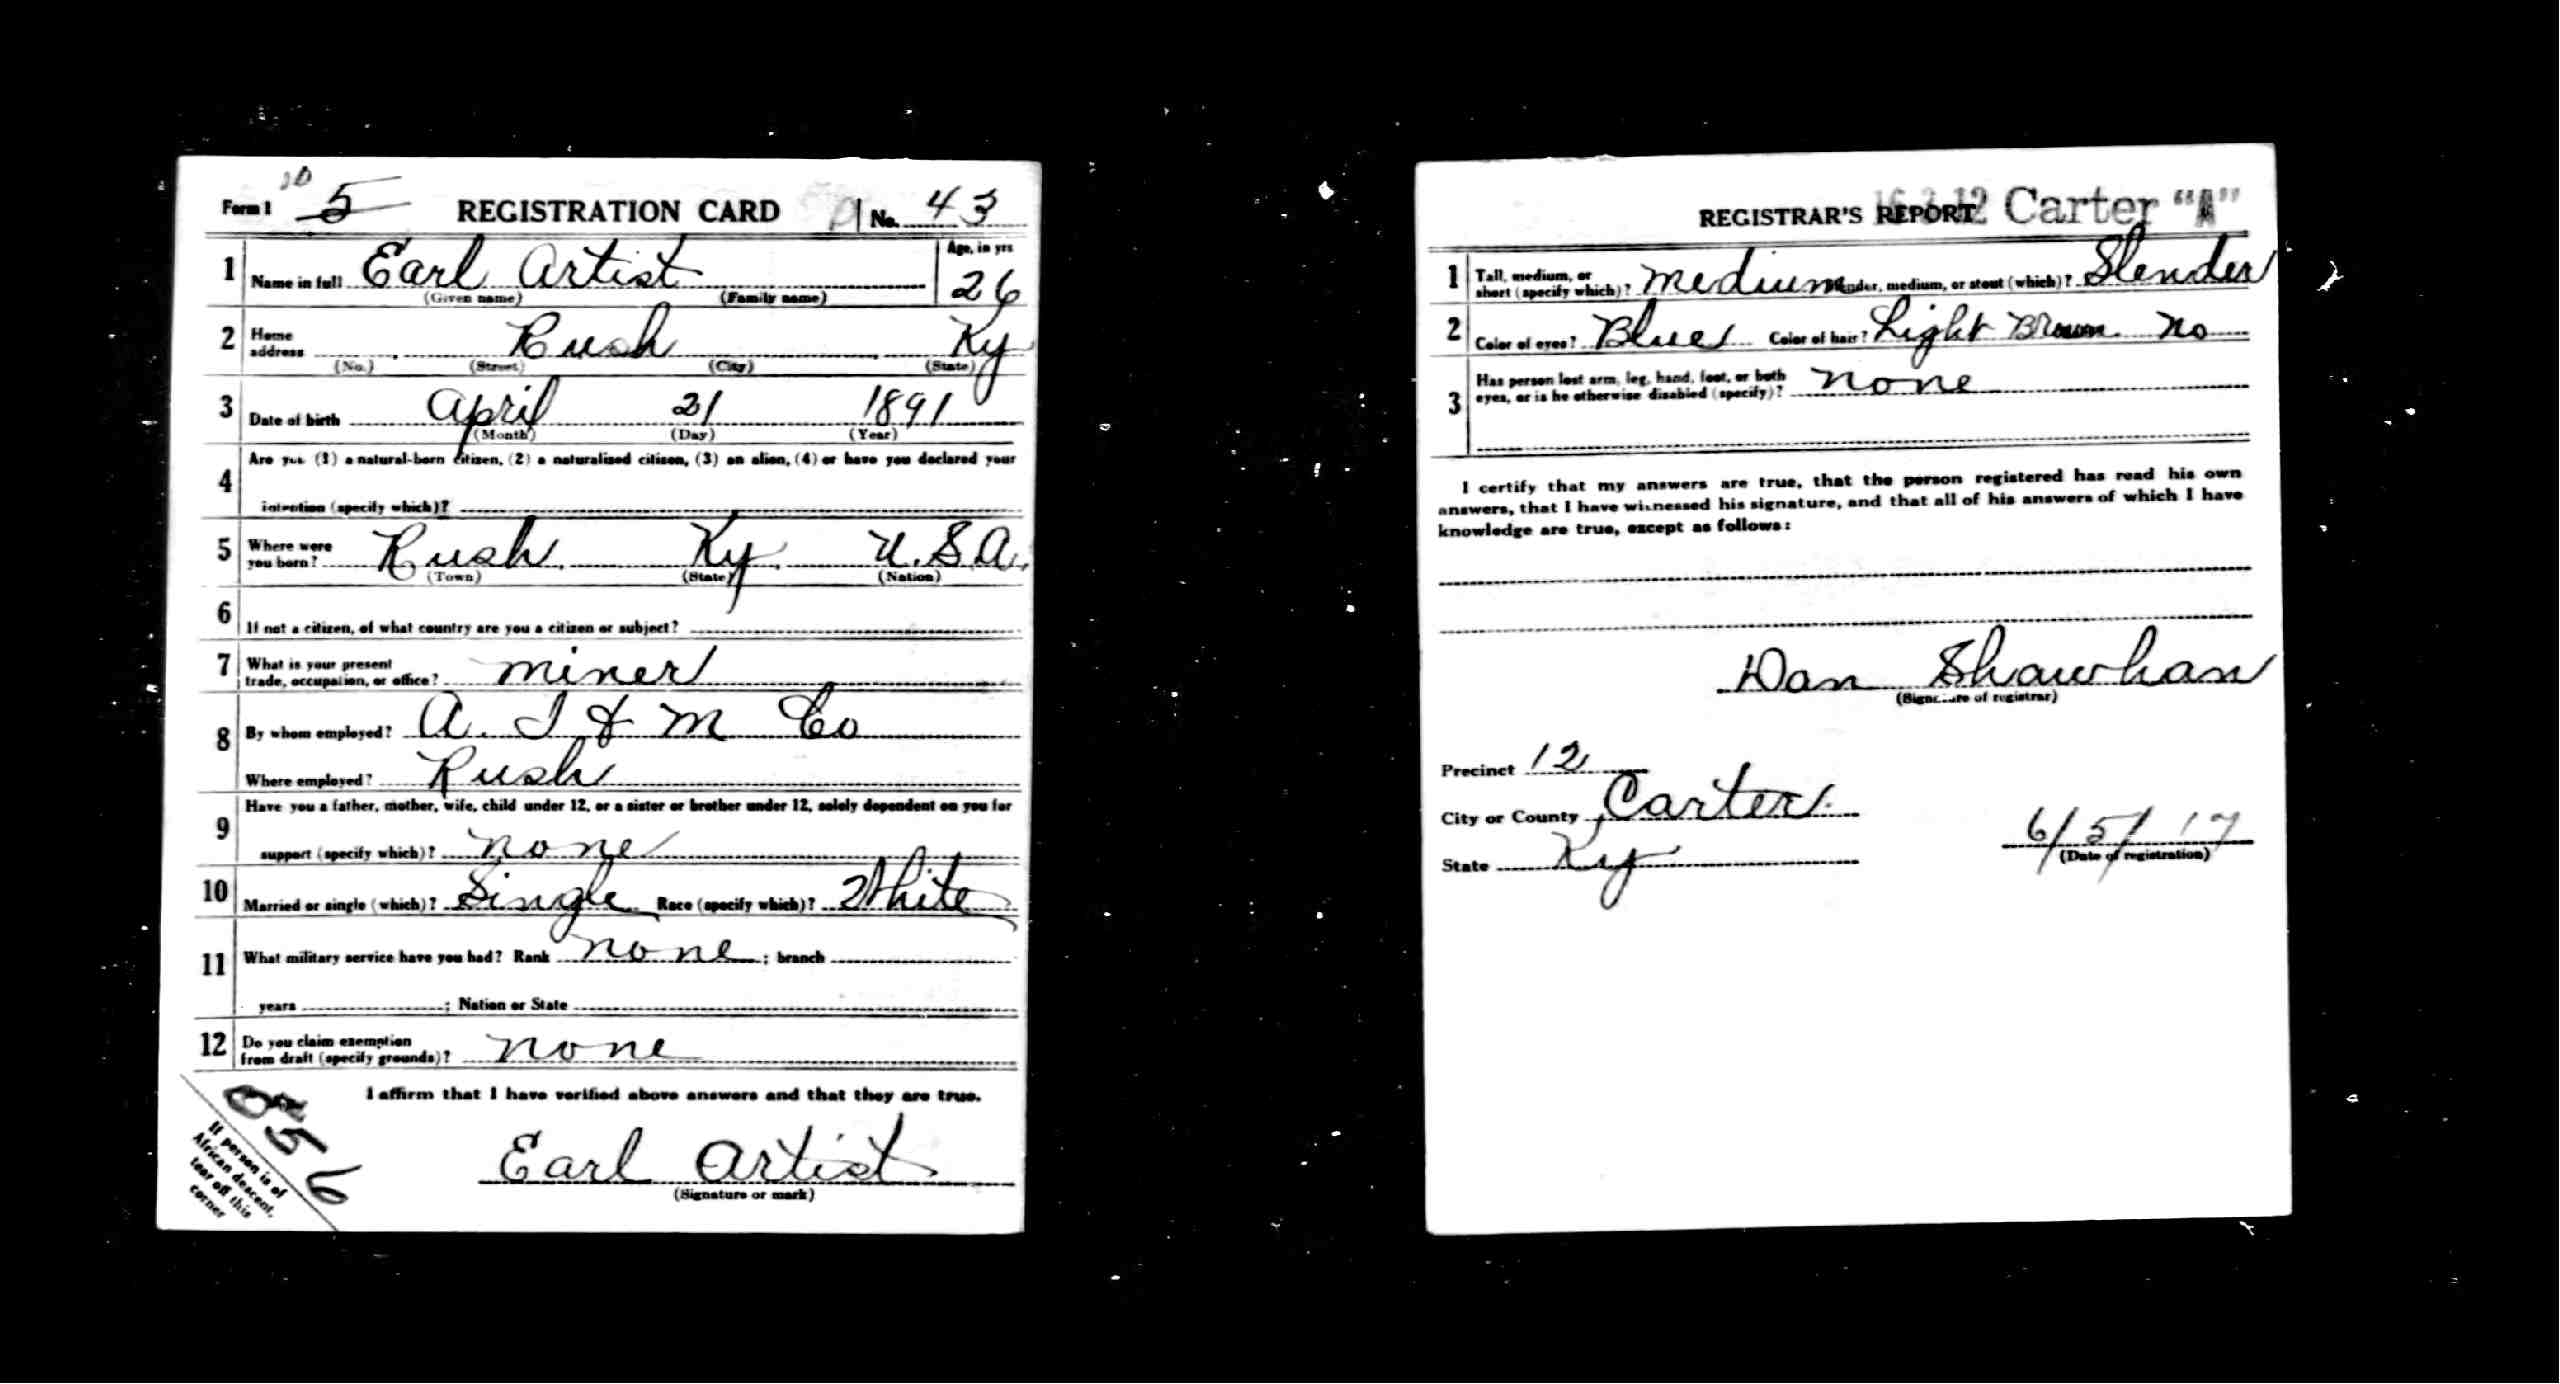 Form 1 5 REGISTRATION CARD No. 43
1 Name in full Earl Artist Age, in yrs 26
(Given name) (Family name)
2 Home address Rush Ky
(No.) (Street) (City) (State)
3 Date of birth April 21 1891
(Month) (Day) (Year)
4 Are you (1) a natural-born citizen, (2) a naturalized citizen, (3) an alien, (4) or have you declared your
intention (specify which)?
5 Where were you born? Rush Ky U.S.A.
(Town) (State) (Nation)
6 If not a citizen, of what country are you a citizen or subject?
7 What is your present trade, occupation, or office? miner
8 By whom employed? A. I & M Co
Where employed? Rush
9 Have you a father, mother, wife, child under 12, or a sister or brother under 12, solely dependent on you for
support (specify which)? none
10 Married or single (which)? Single Race (specify which)? White
11 What military service have you had? Rank none ; branch
years ; Nation or State
12 Do you claim exemption from draft (specify grounds)? none
I affirm that I have verified above answers and that they are true.
Earl Artist
(Signature or mark)
856
If person is of
African descent,
tear off this
corner
REGISTRAR'S REPORT 16-3-12 Carter "A"
1 Tall, medium, or short (specify which)? medium Slender, medium, or stout (which)? Slender
2 Color of eyes? Blue Color of hair? Light Brown No
3 Has person lost arm, leg, hand, foot, or both
eyes, or is he otherwise disabled (specify)? none
I certify that my answers are true, that the person registered has read his own
answers, that I have witnessed his signature, and that all of his answers of which I have
knowledge are true, except as follows:
Dan Shawhan
(Signature of registrar)
Precinct 12
City or County Carter
State Ky
6/5/17
(Date of registration)